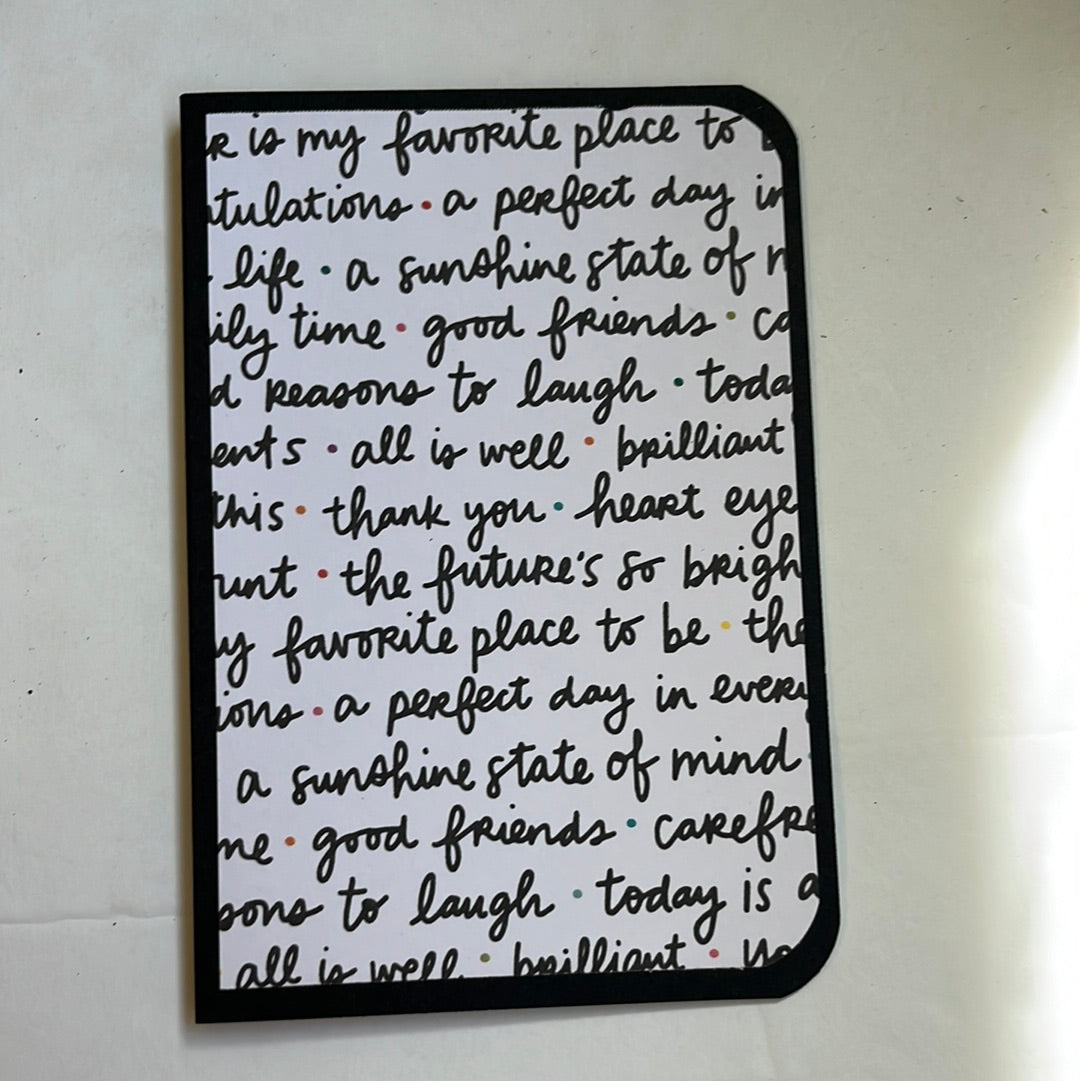 is my favorite place to
tulations • a perfect day in
life • a sunshine state of
ily time • good friends •
d reasons to laugh • toda
ents • all is well • brilliant
this • thank you • heart eye
unt • the future's so brigh
y favorite place to be • the
ions • a perfect day in every
a sunshine state of mind
me • good friends • carefre
sons to laugh • today is a
all is well • brilliant •